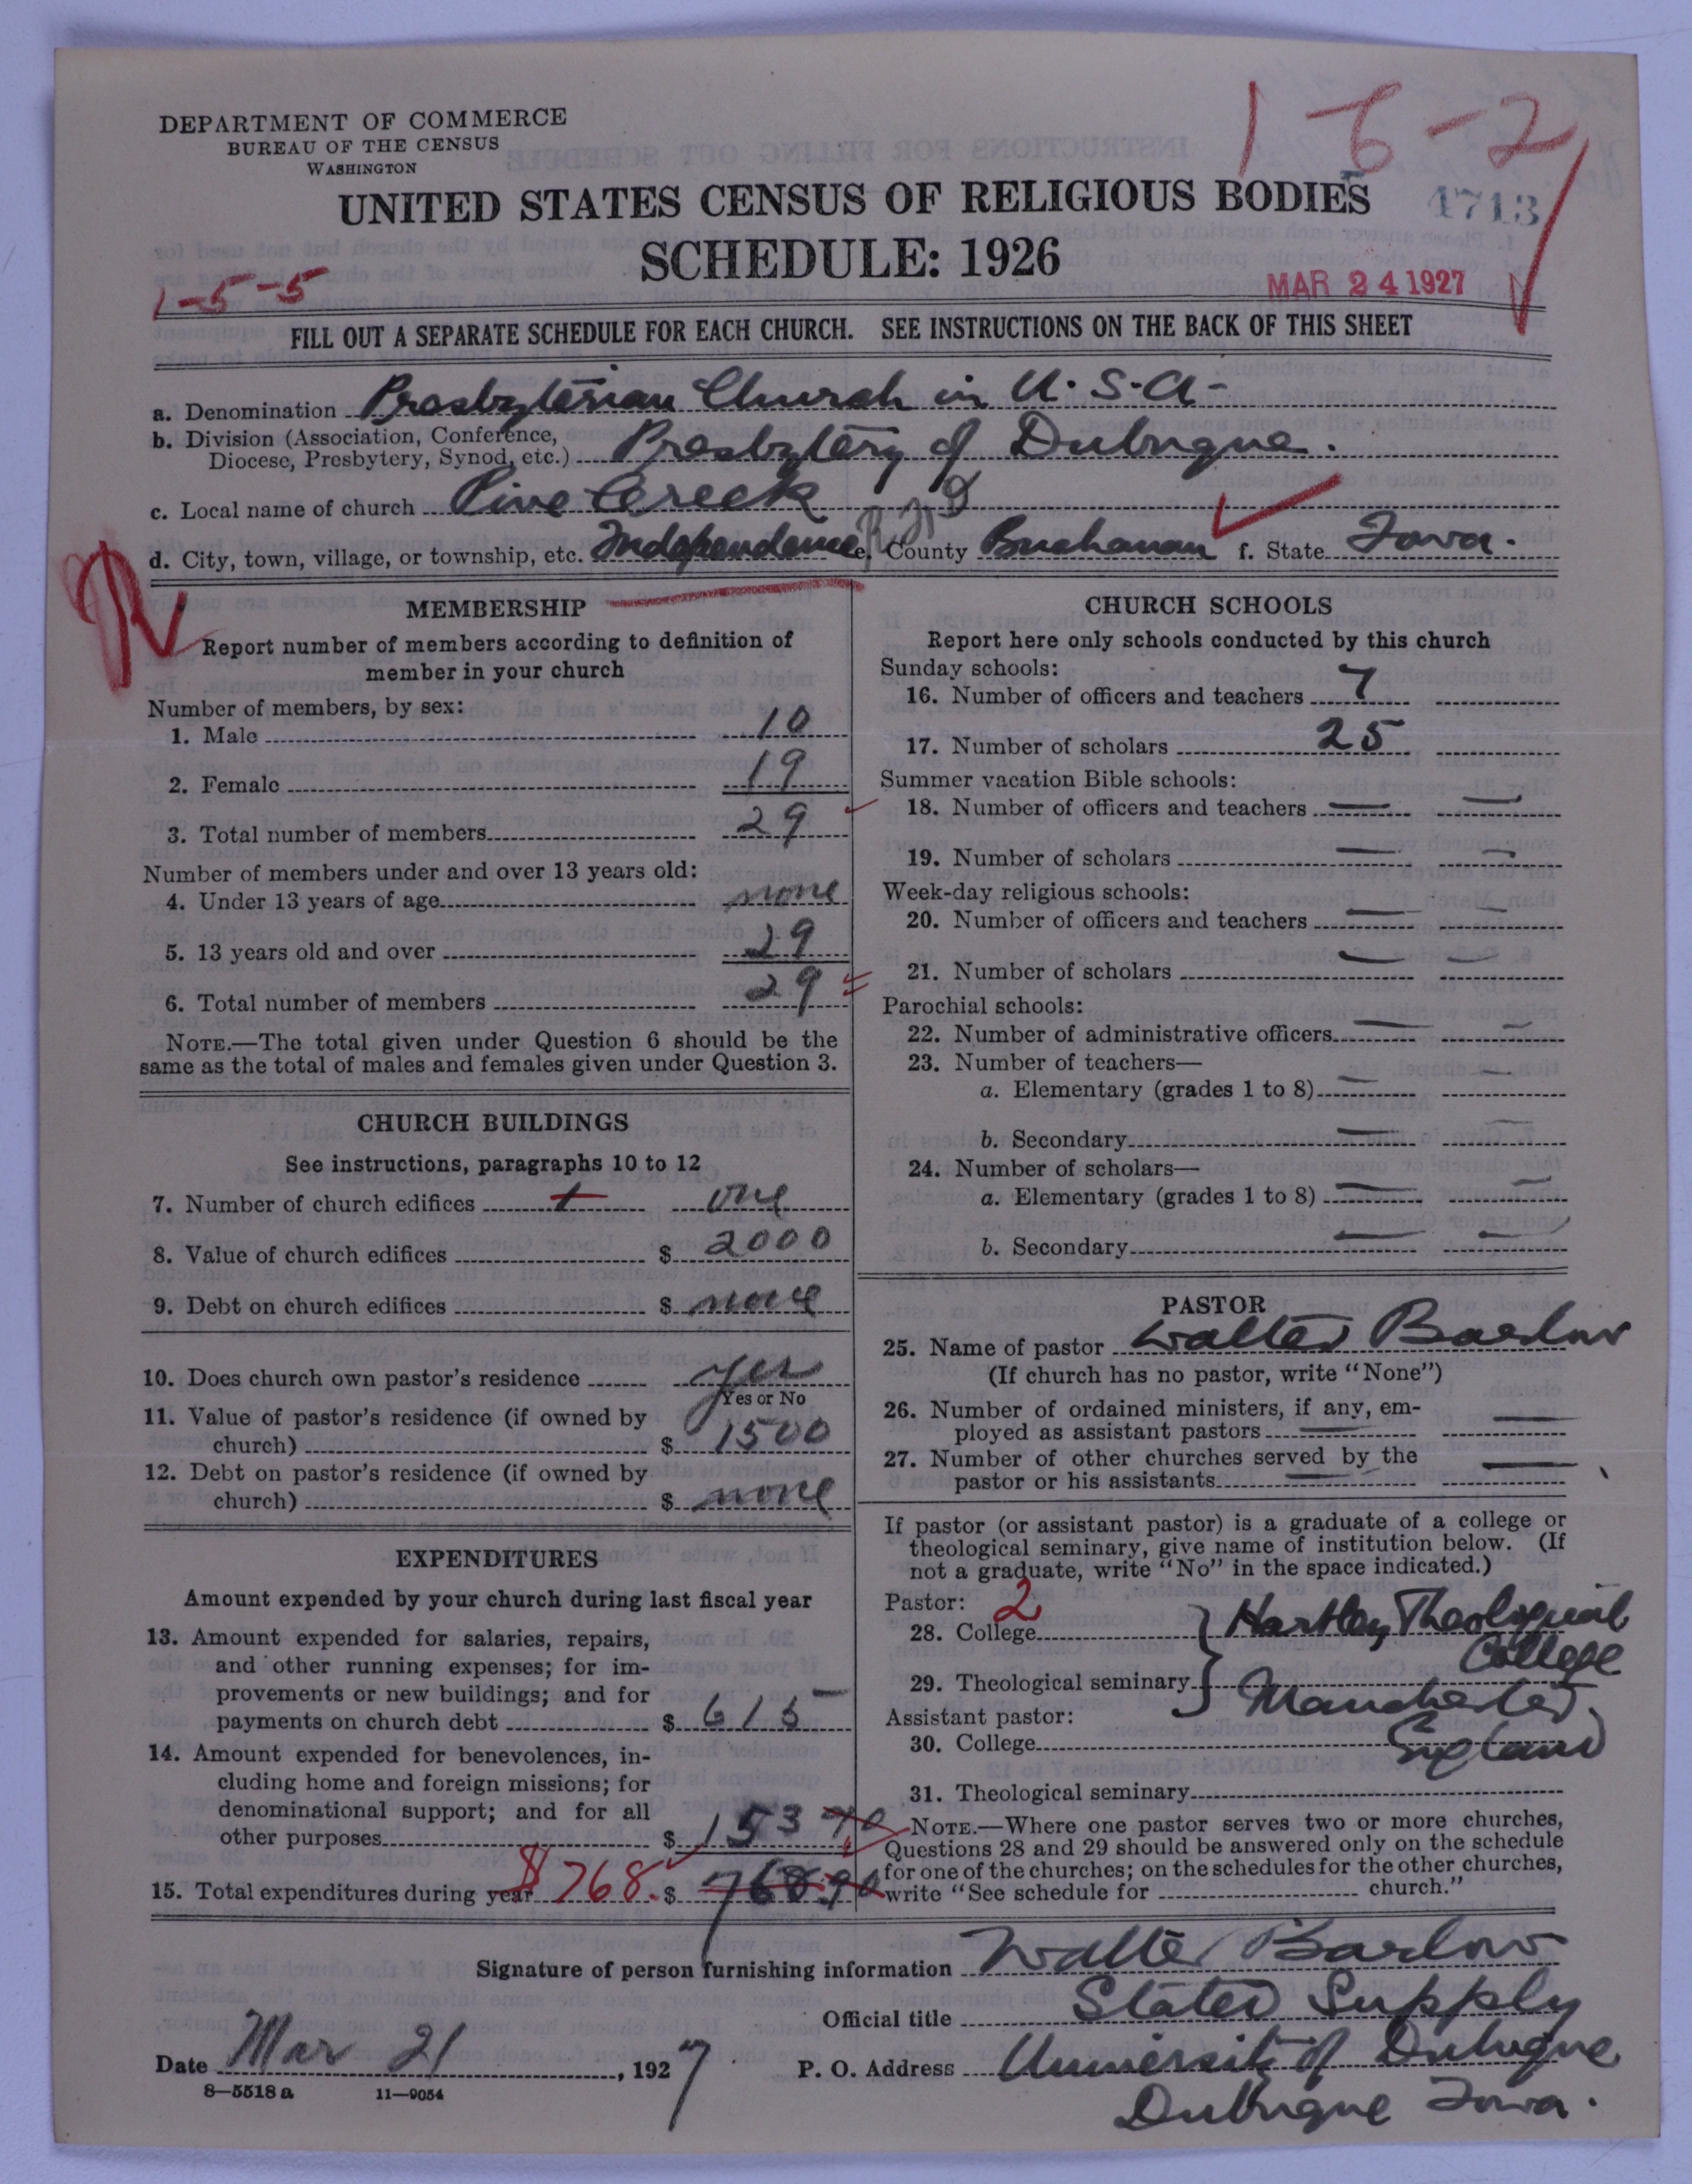 DEPARTMENT OF COMMERCE
BUREAU OF THE CENSUS
WASHINGTON
1-6-2
UNITED STATES CENSUS OF RELIGIOUS BODIES
4713
SCHEDULE: 1926
1-5-5
MAR 24 1927
FILL OUT A SEPARATE SCHEDULE FOR EACH CHURCH. SEE INSTRUCTIONS ON THE BACK OF THIS SHEET
a. Denomination Presbyterian Church in U.S.A.
b. Division (Association, Conference,
Diocese, Presbytery, Synod, etc.) Presbytery of Dubuque.
c. Local name of church Pine Creek
d. City, town, village, or township, etc. Independence R.F.D e. County Buchanan f. State Iowa.
MEMBERSHIP
Report number of members according to definition of
member in your church
Number of members, by sex:
1. Male 10
2. Female 19
3. Total number of members 29
Number of members under and over 13 years old:
4. Under 13 years of age none
5. 13 years old and over 29
6. Total number of members 29
NOTE.—The total given under Question 6 should be the
same as the total of males and females given under Question 3.
CHURCH BUILDINGS
See instructions, paragraphs 10 to 12
7. Number of church edifices 1 one
8. Value of church edifices $ 2000
9. Debt on church edifices $ none
10. Does church own pastor's residence yes
Yes or No
11. Value of pastor's residence (if owned by
church) $ 1500
12. Debt on pastor's residence (if owned by
church) $ none
EXPENDITURES
Amount expended by your church during last fiscal year
13. Amount expended for salaries, repairs,
and other running expenses; for im-
provements or new buildings; and for
payments on church debt $ 615
14. Amount expended for benevolences, in-
cluding home and foreign missions; for
denominational support; and for all
other purposes $ 153 90
15. Total expenditures during year $768. $ 768.90
CHURCH SCHOOLS
Report here only schools conducted by this church
Sunday schools:
16. Number of officers and teachers 7
17. Number of scholars 25
Summer vacation Bible schools:
18. Number of officers and teachers — —
19. Number of scholars — —
Week-day religious schools:
20. Number of officers and teachers — —
21. Number of scholars — —
Parochial schools:
22. Number of administrative officers — —
23. Number of teachers—
a. Elementary (grades 1 to 8) — —
b. Secondary — —
24. Number of scholars—
a. Elementary (grades 1 to 8) — —
b. Secondary — —
PASTOR
25. Name of pastor Walter Barlow
(If church has no pastor, write "None")
26. Number of ordained ministers, if any, em-
ployed as assistant pastors — —
27. Number of other churches served by the
pastor or his assistants — —
If pastor (or assistant pastor) is a graduate of a college or
theological seminary, give name of institution below. (If
not a graduate, write "No" in the space indicated.)
Pastor: 2
28. College Hartley Theological
College
29. Theological seminary Manchester,
Assistant pastor:
England
30. College
31. Theological seminary
NOTE.—Where one pastor serves two or more churches,
Questions 28 and 29 should be answered only on the schedule
for one of the churches; on the schedules for the other churches,
write "See schedule for church."
Signature of person furnishing information Walter Barlow
Official title Stated Supply
Date Mar 21, 1927 P. O. Address University of Dubuque
Dubuque Iowa.
8—5518 a 11—9054